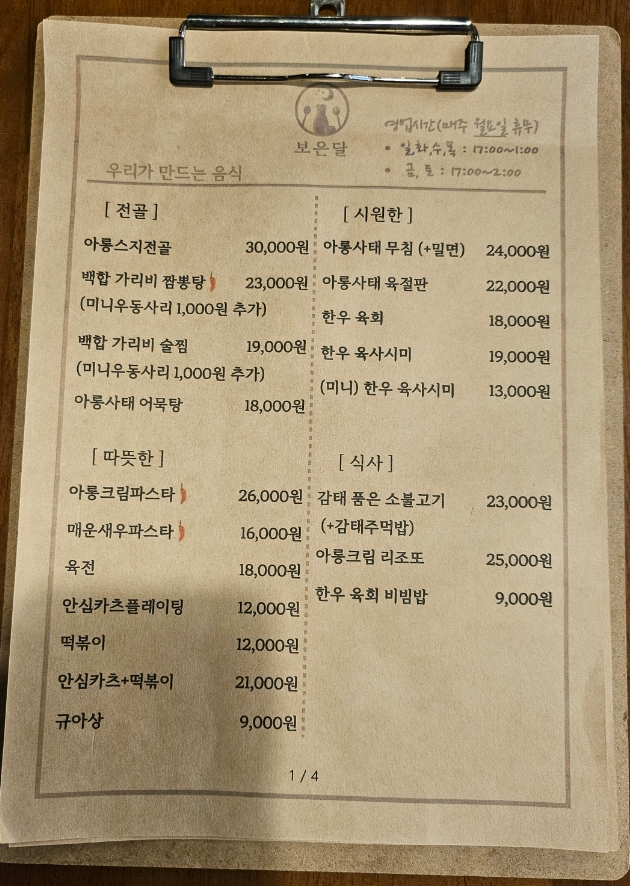 보은달
영업시간(매주 월요일 휴무)
• 일,화,수,목 : 17:00~1:00
• 금, 토 : 17:00~2:00
우리가 만드는 음식
[ 전골 ]
아롱스지전골 30,000원
백합 가리비 짬뽕탕 23,000원
(미니우동사리 1,000원 추가)
백합 가리비 술찜 19,000원
(미니우동사리 1,000원 추가)
아롱사태 어묵탕 18,000원
[ 따뜻한 ]
아롱크림파스타 26,000원
매운새우파스타 16,000원
육전 18,000원
안심카츠플레이팅 12,000원
떡볶이 12,000원
안심카츠+떡볶이 21,000원
규아상 9,000원
[ 시원한 ]
아롱사태 무침 (+밀면) 24,000원
아롱사태 육절판 22,000원
한우 육회 18,000원
한우 육사시미 19,000원
(미니) 한우 육사시미 13,000원
[ 식사 ]
감태 품은 소불고기 23,000원
(+감태주먹밥)
아롱크림 리조또 25,000원
한우 육회 비빔밥 9,000원
1 / 4